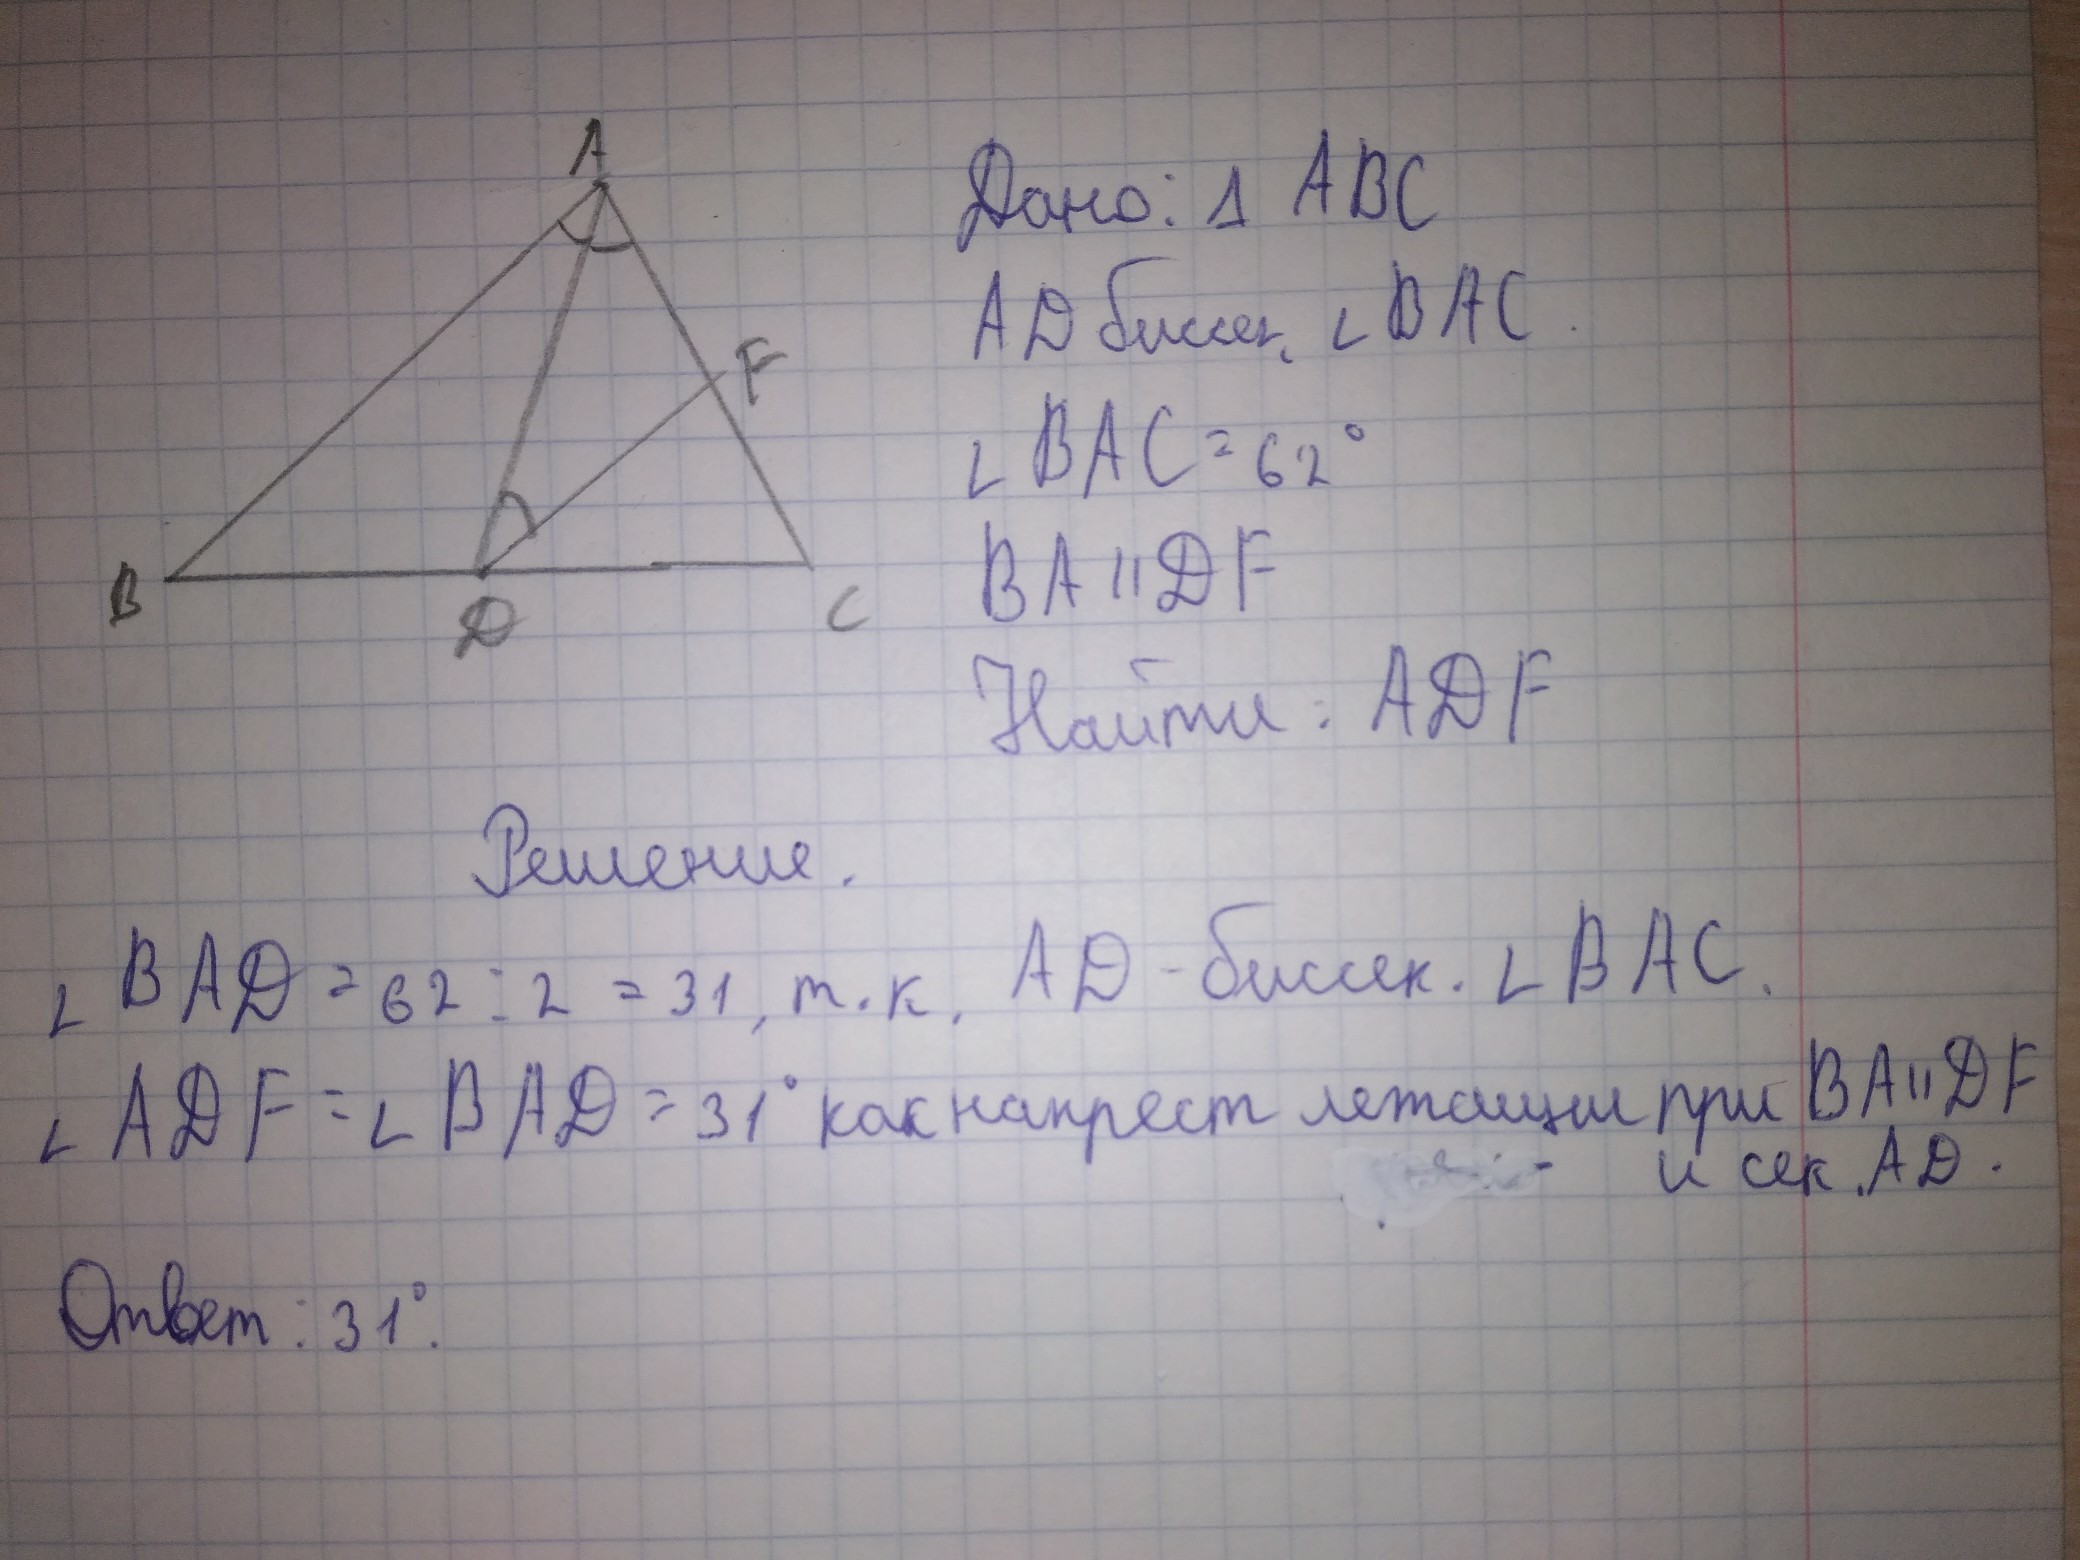 A
F
B
D
C
Дано: Δ ABC
AD биссек. ∠BAC.
∠BAC = 62°
BA || DF
Найти: ADF
Решение.
∠BAD = 62 : 2 = 31, т.к. AD - биссек. ∠BAC.
∠ADF = ∠BAD = 31° как накрест лежащии при BA || DF
и сек. AD.
Ответ: 31°.